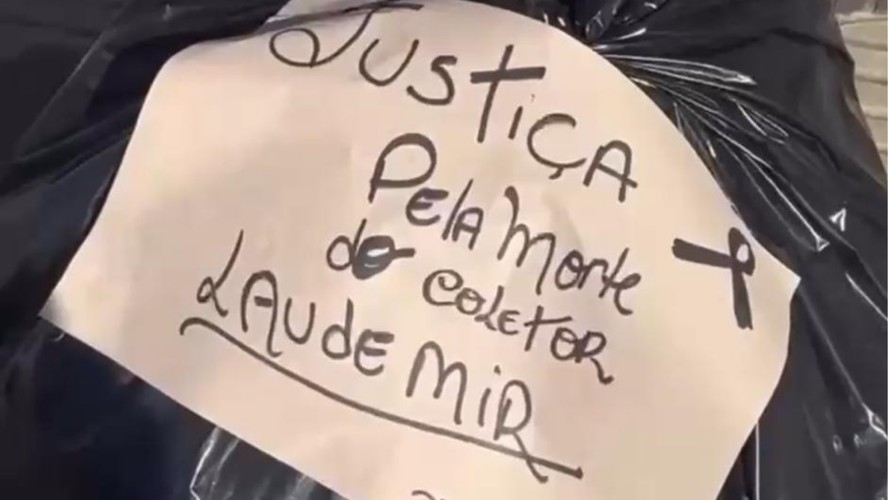 JUSTiÇA
PElA MoRte
do COLETOR
LAUdEMiR